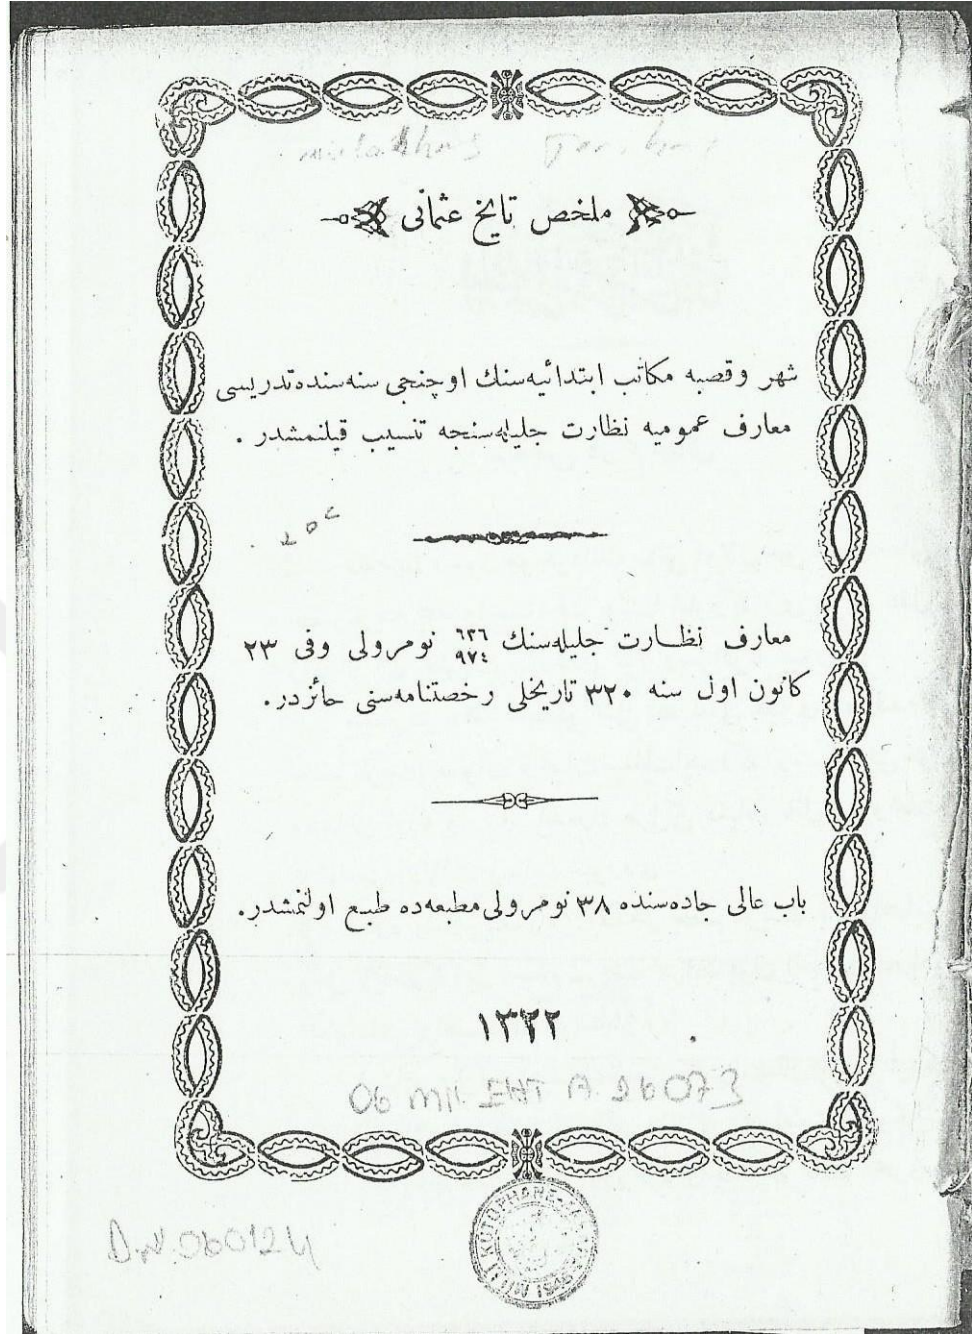 ملخص تاریخ عثمانی
شهر وقصبه مكاتب ابتدائیه‌سنك اوچنجی سنه‌سنده تدریسی
معارف عمومیه نظارت جلیله‌سنجه تنسیب قیلنمشدر .
معارف نظارت جلیله‌سنك ٦٣٦/٩٧٤ نومرولی وفی ٢٣
كانون اول سنه ٣٢٠ تاریخلی رخصتنامه‌سنی حائزدر .
باب عالی جاده‌سنده ٣٨ نومرولی مطبعه‌ده طبع اولنمشدر .
١٣٢٢
06 Mil. EHT A 26073
D.N. 060124
MİLLİ KÜTÜPHANE 1946